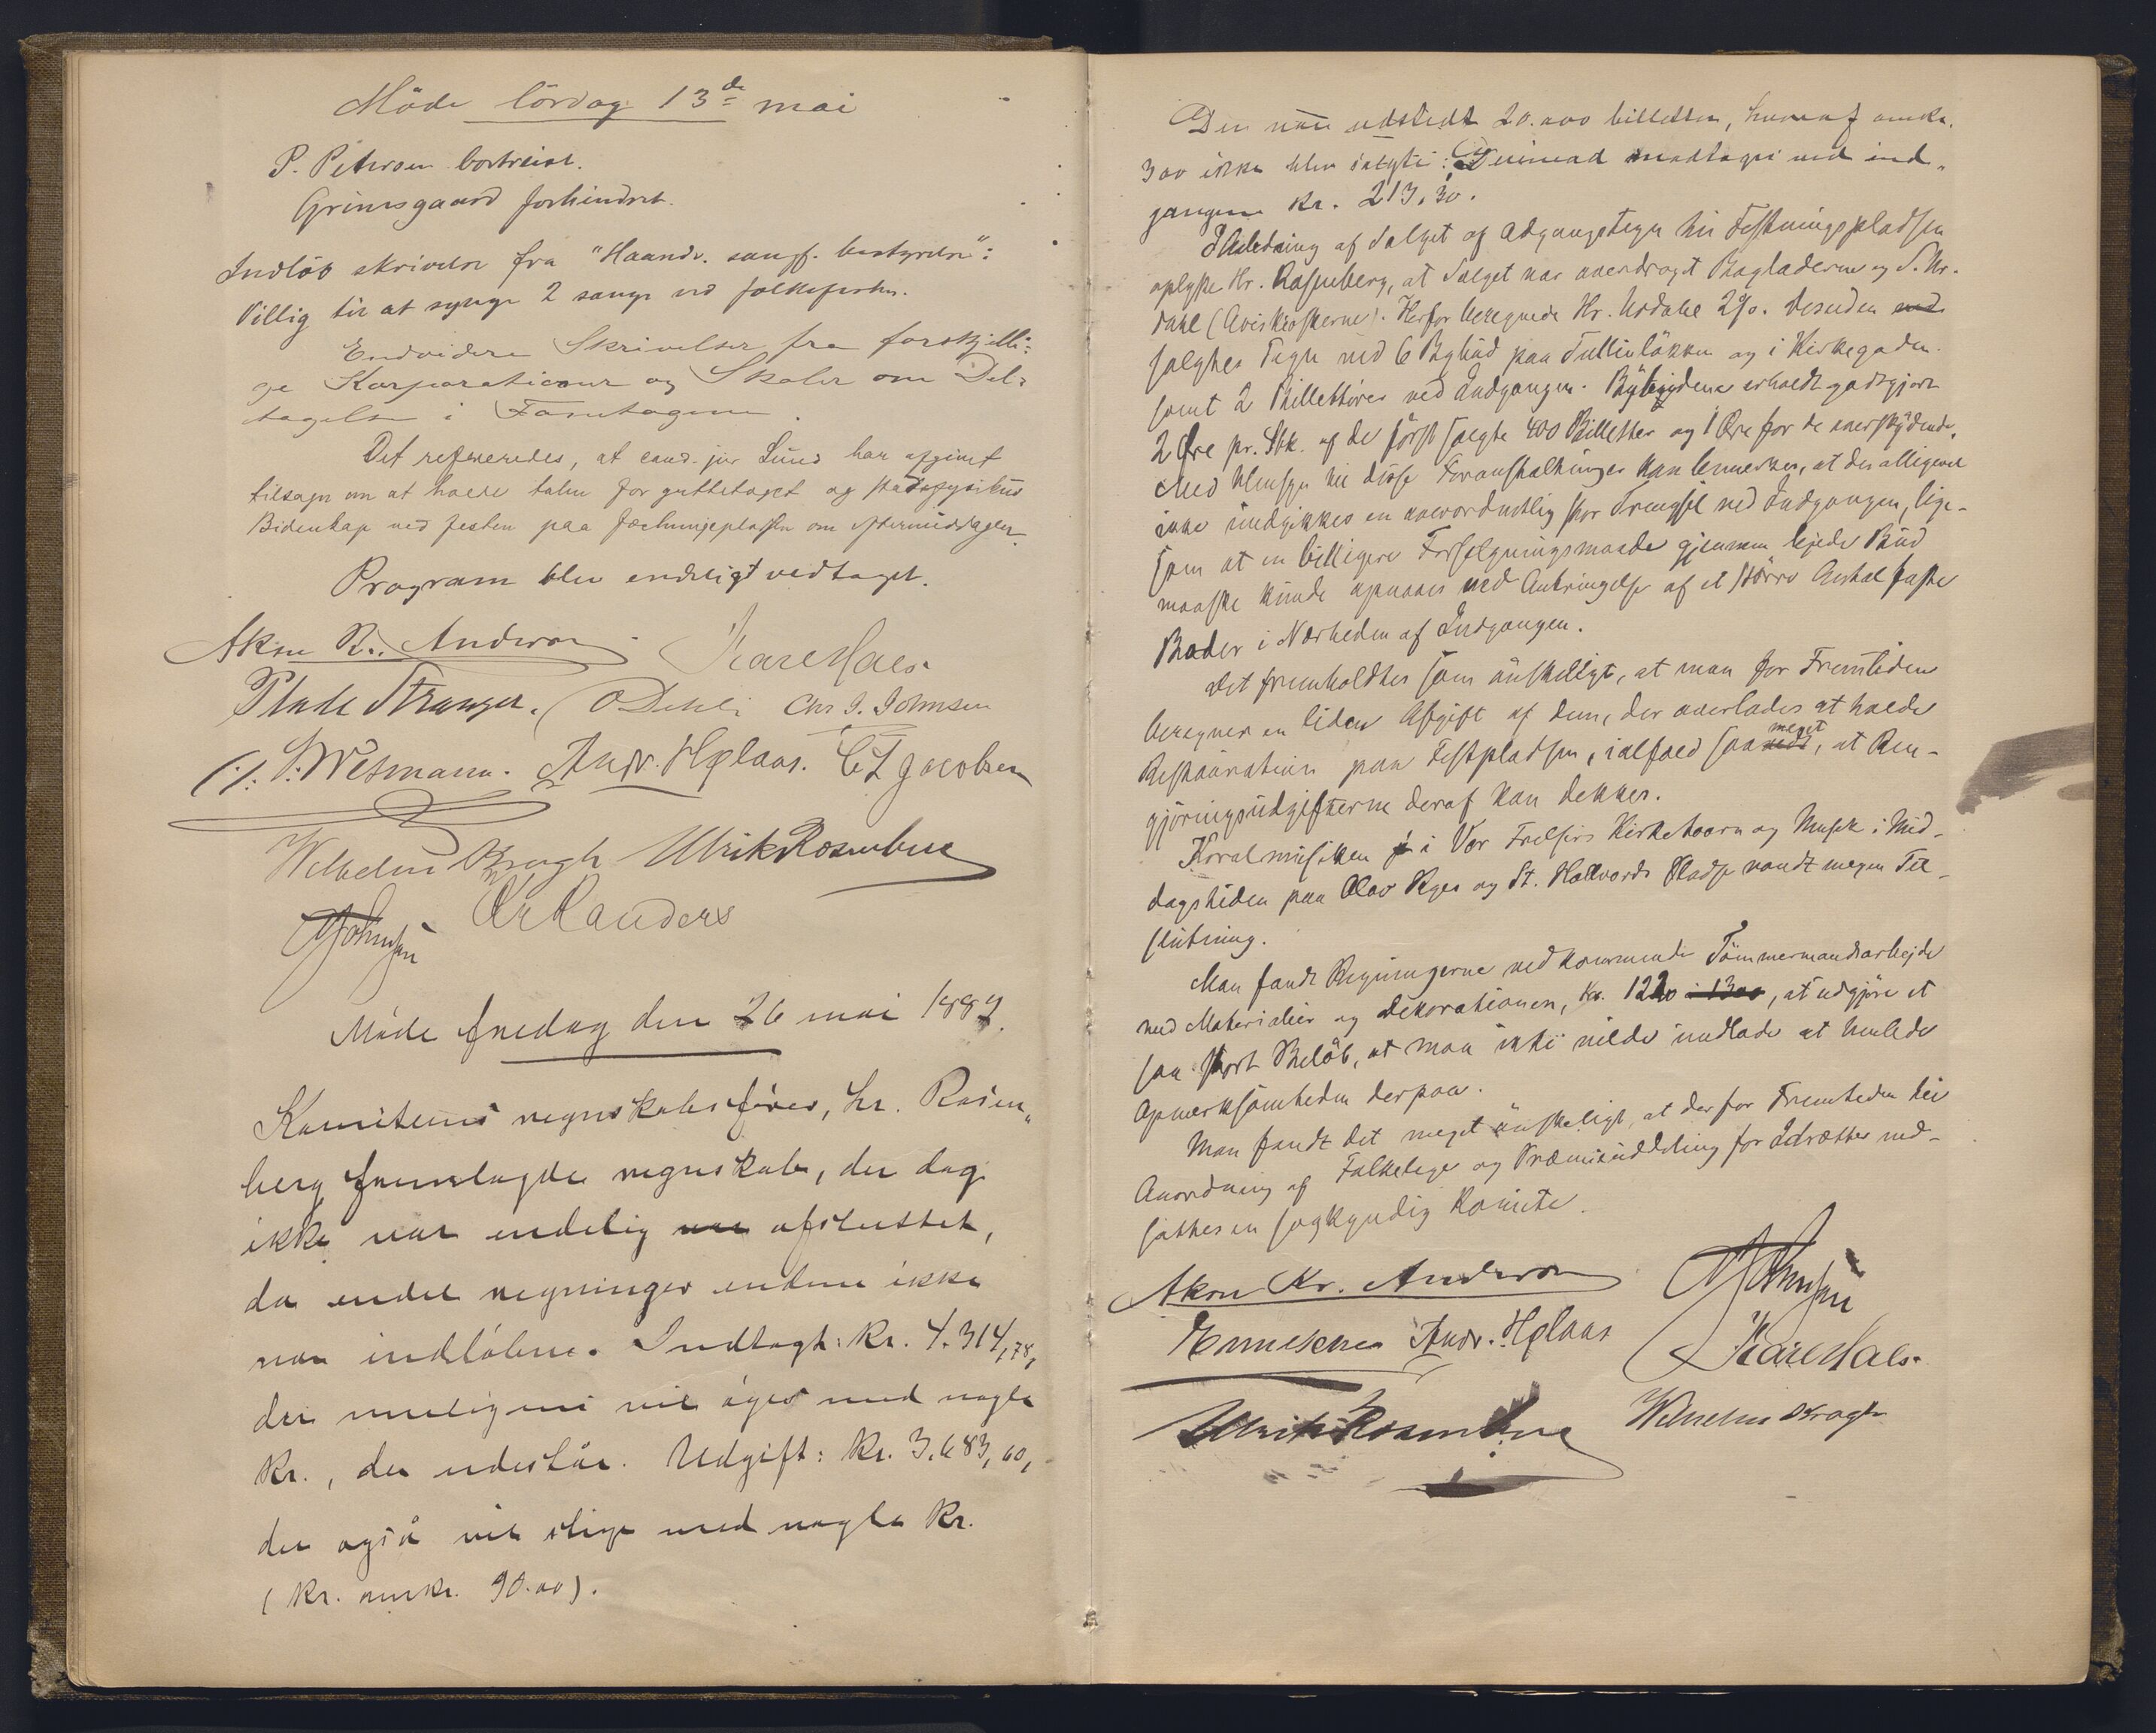 Möde lördag 13de mai
P. Petersen bortreist.
Grimsgaard forhindret.
Indløb skrivelse fra "Haandv. sangf. bestyrelse":
Villig til at synge 2 sange ved folkefesten.
Endvidere Skrivelser fra forskjelli-
ge Korporationer og Skoler om Del-
tagelse i Fanetogene.
Det refereredes, at cand. jur Lund har afgivet
tilsagn om at holde talen for guttetoget og stadsfysikus
Bidenkap ved festen paa Fæstningspladsen om eftermiddagen.
Program blev endeligt vedtaget.
Aksu Kr. Andersen
Kare Hals.
Stranger. O Dehli Chr. I. Johnsen
S. Wesmann. Andr. Hølaas. C L Jacobsen
Wilhelm Kragh Ulrik Rosenberg
Johnsen Kr Randers
Möde fredag den 26 mai 1882.
Komiteens regnskabsfører, hr. Rosen-
berg fremlagde regnskab, der dog
ikke var endelig var afsluttet,
da endel regninger endnu ikke
var indløbne. Indtægt: Kr. 4.314,78,
der muligens vil øges med nogle
Kr., der udestår. Udgift: Kr. 3.683,60,
der også vil stige med nogle Kr.
(Kr. omkr. 90.00).
Der var udstedt 20.000 billetter, hvoraf omkr.
300 ikke blev solgte: Desuden modtoges ved ind-
gangen Kr. 213,30.
I Anledning af Salget af Adgangstegn til Festningspladsen
oplyste Hr. Rosenberg, at Salget var overdraget Bogladerne og S. Ur-
dahl (Aviskioskerne). Herfor beregnede Hr. Urdahl 2%. Desuden ved
solgtes Tegn ved 6 Bybud paa Tullinløkken og i Kirkegaden
samt 2 Billettører ved Indgangen. Bybudene erholdt godtgjort
2 Øre pr. Stk. af de först solgte 400 Billetter og 1 Øre for de overskydende.
Med Hensyn til disse Foranstaltninger kan bemerkes, at der alligevel
ikke undgikkes en overordentlig stor Trengsel ved Indgangen, lige-
som at en billigere Forselgningsmaade gjennem lejede Bud
maaske kunde opnaaes ved Anbringelse af et større Antal faste
Boder i Nærheden af Indgangen.
Det fremholdtes som ønskeligt, at man for Fremtiden
beregner en liden Afgift af dem, der overlades at holde
Restauration paa Festpladsen, ialfald saa meget, at Ren-
gjøringsudgifterne deraf kan dekkes.
Koralmusiken i Vor Frelsers Kirketaarn og Musik i Mid-
dagstiden paa Olav Ryes og St. Halvards Plads vandt megen Til-
slutning.
Man fandt Regningerne vedkommende Tømmermandsarbejde
med Materialier og Dekorationen, Kr. 1220 - 1300, at udgjøre et
saa stort Beløb, at man ikke vilde undlade at henlede
Opmerksomheden derpaa.
Man fandt det meget ønskeligt, at der for Fremtiden til
Anordning af Folkelege og Præmieuddeling for Idrætter ned-
sattes en sagkyndig Komite.
Aksu Kr. Andersen Johnsen
Andr. Hølaas Kare Hals.
Ulrik Rosenberg Wilhelm Kragh